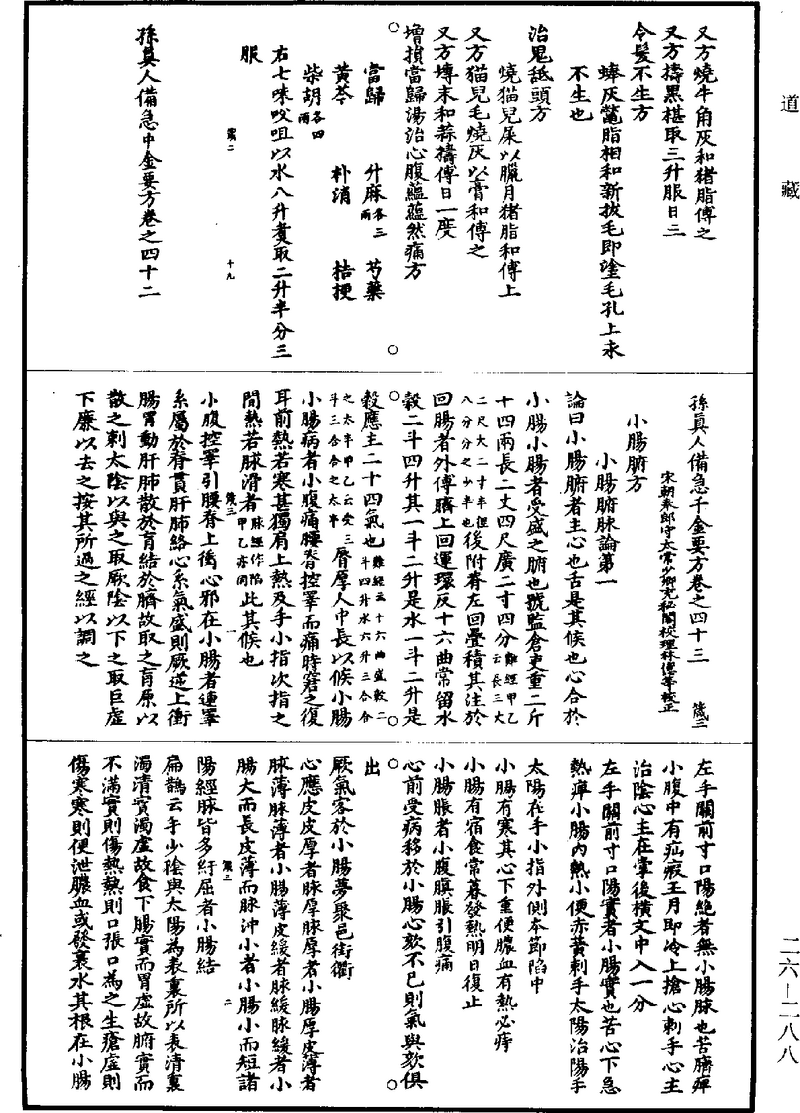 道藏
又方燒牛角灰和猪脂傅之
又方擣黑椹取三升服日三
令髮不生方
蜯灰鼈脂相和新拔毛即塗毛孔上永
不生也
治鬼䑛頭方
燒猫兒屎以臘月猪脂和傅上
又方猫兒毛燒灰以膏和傅之
又方塼末和蒜擣傅日一度
增損當歸湯治心腹蘊蘊然痛方
當歸 升麻各三兩 芍藥
黃芩 朴消 桔梗
柴胡各四兩
右七味㕮咀以水八升煑取二升半分三
服
孫眞人備急中金要方卷之四十二
十九
孫眞人備急千金要方卷之四十三 箴三
宋朝奉郎守太常少卿充秘閣校理林億等校正
小腸腑方
小腸腑脉論第一
論曰小腸腑者主心也舌是其候也心合於
小腸小腸者受盛之腑也號監倉吏重二斤
十四兩長二丈四尺廣二寸四分難經甲乙云長三丈
二尺大二寸半徑八分分之少半也後附脊左回疊積其注於
回腸者外傅臍上回運環反十六曲常留水
穀二斗四升其一斗二升是水一斗二升是
穀應主二十四氣也難經云十六曲盛穀二斗四升水六升三合合
之太半甲乙云受三斗三合合之太半脣厚人中長以候小腸
小腸病者小腹痛腰脊控睪而痛時窘之復
耳前熱若寒甚獨肩上熱及手小指次指之
間熱若脉滑者脉經作陷甲乙亦同此其候也
小腹控睪引腰脊上衝心邪在小腸者連睪
系屬於脊貫肝肺絡心系氣盛則厥逆上衝
腸胃動肝肺散於肓結於臍故取之肓原以
散之刺太陰以與之取厥陰以下之取巨虛
下廉以去之按其所過之經以調之
箴三 一
左手關前寸口陽絶者無小腸脉也苦臍痺
小腹中有疝瘕王月即冷上搶心刺手心主
治陰心主在掌後橫文中入一分
左手關前寸口陽實者小腸實也苦心下急
熱痺小腸內熱小便赤黃刺手太陽治陽手
太陽在手小指外側本節陷中
小腸有寒其心下重便膿血有熱必痔
小腸有宿食常暮發熱明日復止
小腸脹者小腹䐜脹引腹痛
心前受病移於小腸心欬不已則氣與欬俱
出
厥氣客於小腸夢聚邑街衢
心應皮皮厚者脉厚脉厚者小腸厚皮薄者
脉薄脉薄者小腸薄皮緩者脉緩脉緩者小
腸大而長皮薄而脉沖小者小腸小而短諸
陽經脉皆多紆屈者小腸結
扁鵲云手少陰與太陽為表裏所以表清裏
濁清實濁虛故食下腸實而胃虛故腑實而
不滿實則傷熱熱則口張口為之生瘡虛則
傷寒寒則便泄膿血或發裏水其根在小腸
箴三 二
二六—二八八